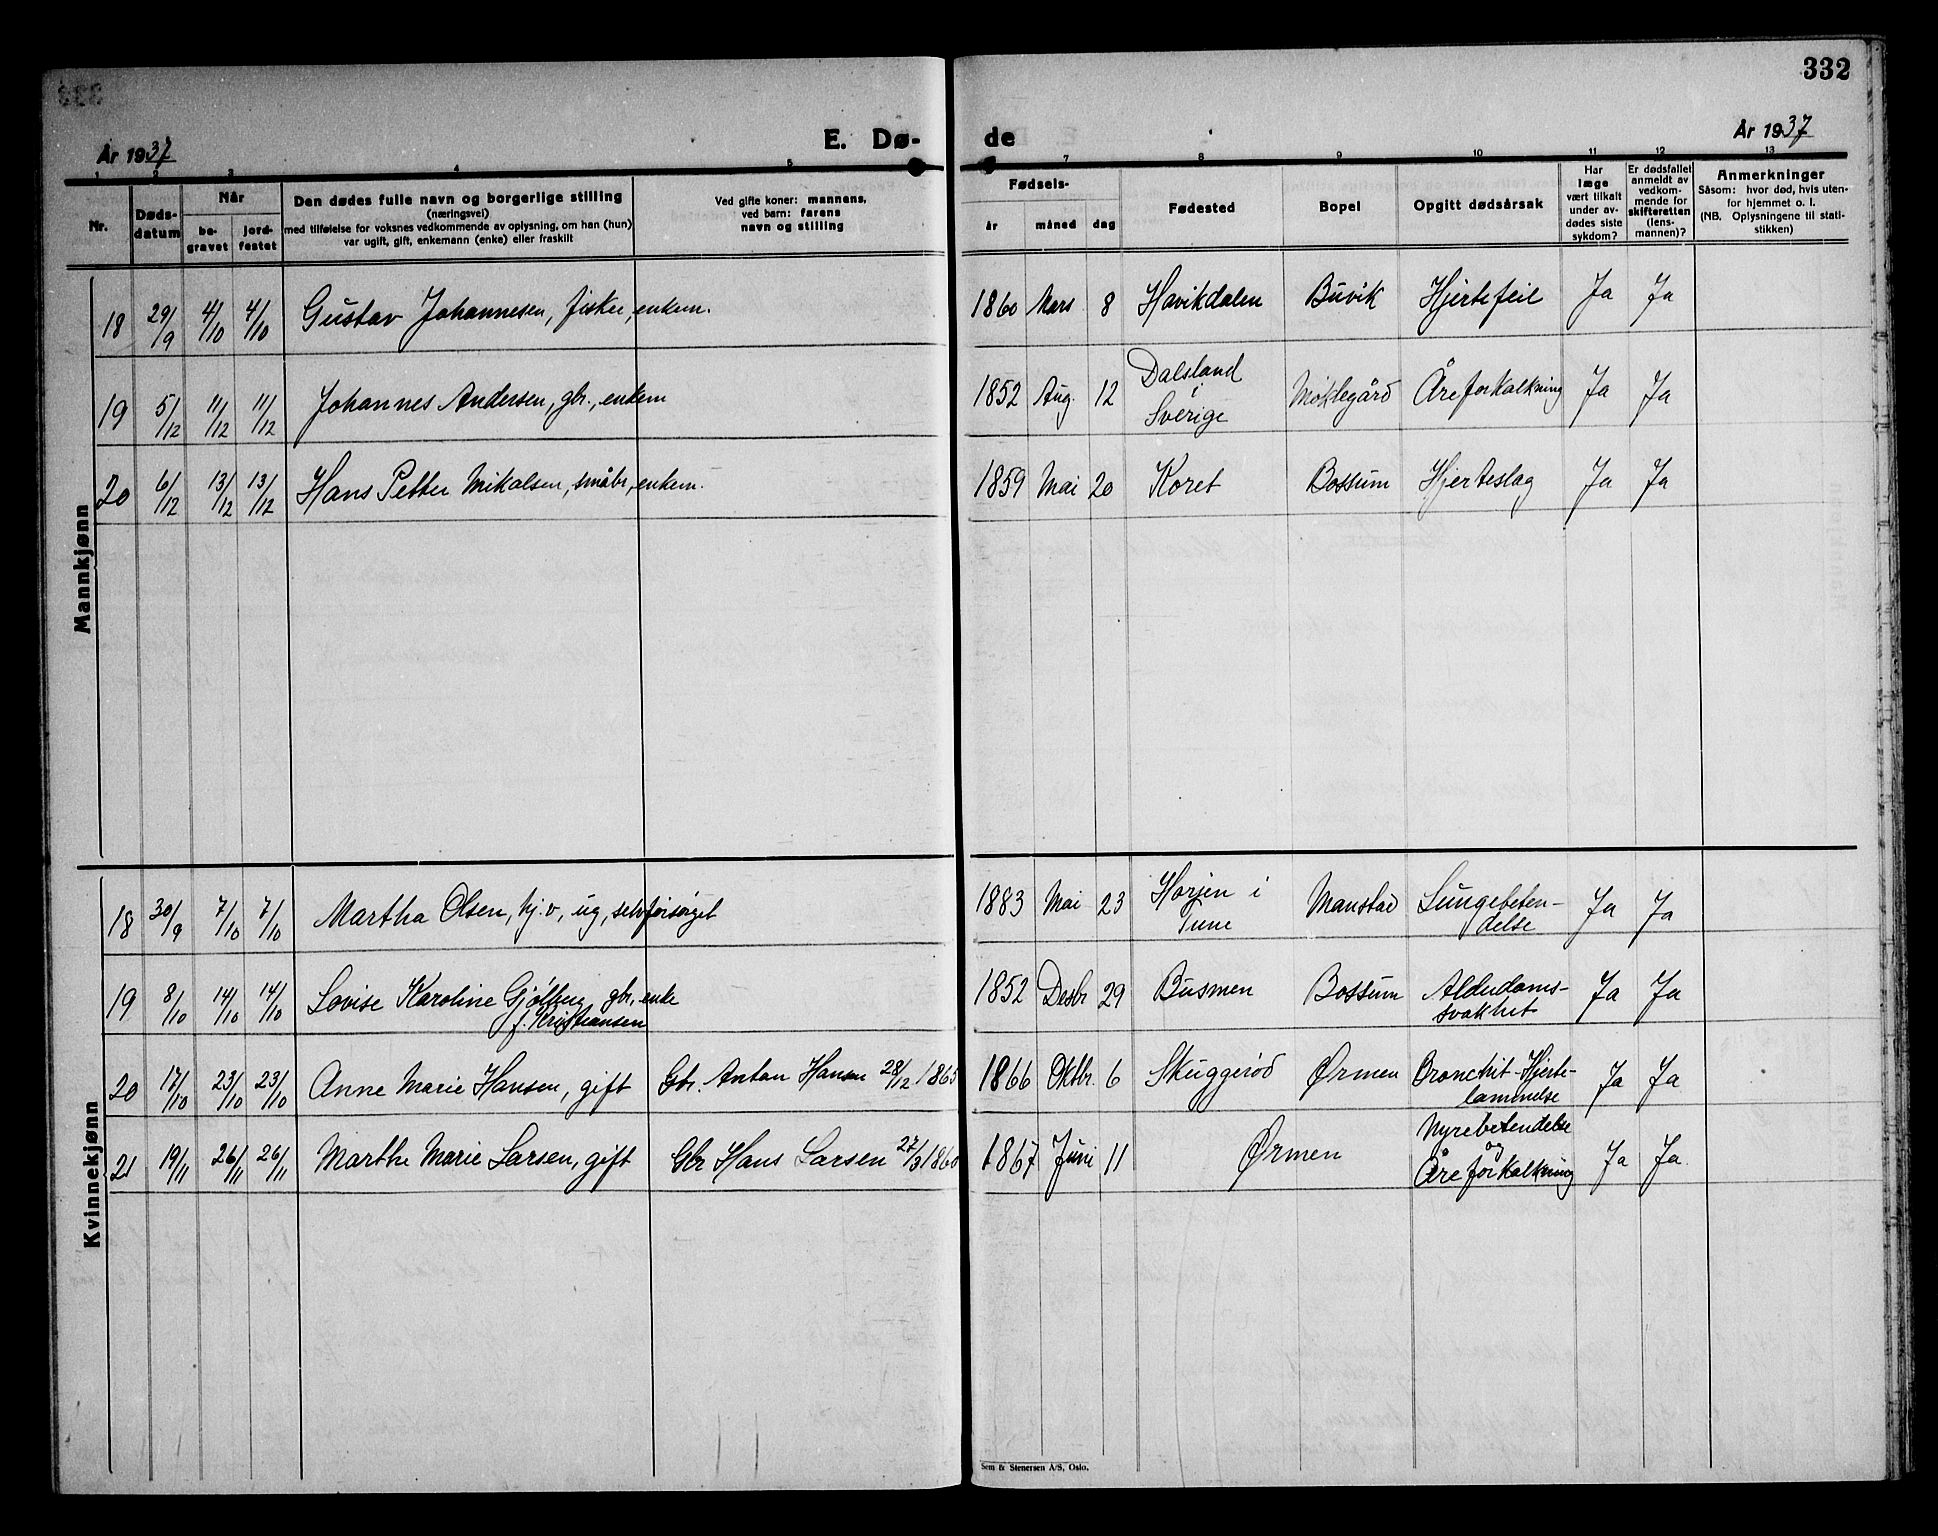 332
År 1937 E. Dø- de År 1937
1 2 3 4 5 7 8 9 10 11 12 13
Nr. Døds-datum Når be-gravet jord-festet Den dødes fulle navn og borgerlige stilling (næringsvei) med tilføielse for voksnes vedkommende av oplysning, om han (hun) var ugift, gift, enkemann (enke) eller fraskilt Ved gifte koner: mannens, ved barn: farens navn og stilling Fødsels- år måned dag Fødested Bopel Opgitt dødsårsak Har læge vært tilkalt under av-dødes siste sykdom? Er dødsfallet anmeldt av vedkom-mende for skifteretten (lens-mannen)? Anmerkninger Såsom: hvor død, hvis uten-for hjemmet o. l. (NB. Oplysningene til stati-stikken)
Mannkjønn
18 29/9 4/10 4/10 Gustav Johannesen, fisker, enkem. 1860 Mars 8 Havikdalen Buvik Hjertefeil Ja Ja
19 5/12 11/12 11/12 Johannes Andersen, gbr., enkem 1852 Aug. 12 Dalsland i Sverige Moklegård Åreforkalkning Ja Ja
20 6/12 13/12 13/12 Hans Petter Mikalsen, småbr, enkem. 1859 Mai 20 Koret Bossum Hjerteslag Ja Ja
Kvinnekjønn
18 30/9 7/10 7/10 Martha Olsen, hj.v, ug, selvforsørget 1883 Mai 23 Horjen i Tune Manstad Lungebeten-delse Ja Ja
19 8/10 14/10 14/10 Lovise Karoline Gjølberg, gbr, enke f. Kristiansen 1852 Desbr 29 Busmen Bossum Alderdoms-svakhet Ja Ja
20 17/10 23/10 23/10 Anne Marie Hansen, gift Gbr. Anton Hansen 28/12 1865 1866 Oktbr. 6 Skuggerød Ørmen Bronchit-Hjerte-lammelse Ja Ja
21 19/11 26/11 26/11 Marthe Marie Larsen, gift Gbr Hans Larsen 27/3 1860 1867 Juni 11 Ørmen Nyrebetendelse og Åreforkalkning Ja Ja.
Sem & Stenersen A/S, Oslo.